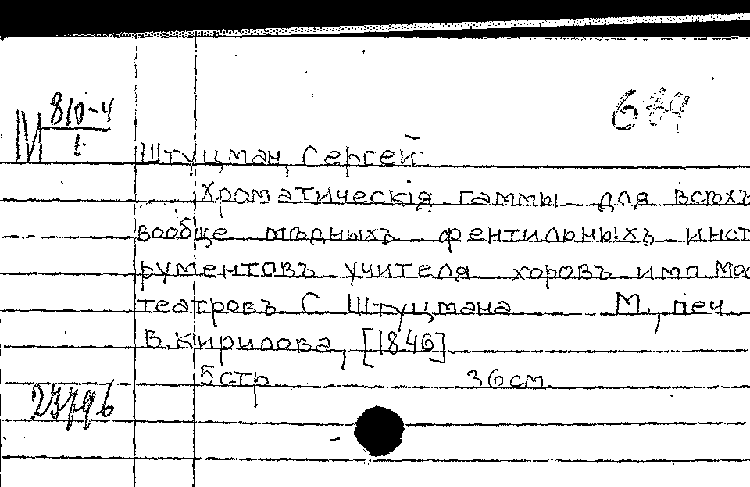 М 810-4
1
689
Штуцман, Сергей
Хроматическія гаммы для всѣхъ
вообще мѣдныхъ фентильныхъ инст
рументовъ учителя хоровъ имп Мос
театровъ С Штуцмана М., печ
В. Кирилова, [1846]
5 стр 36 см
23796